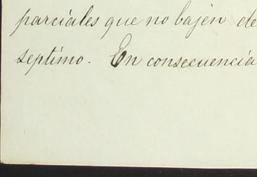 parciales que no bajen de
septimo. En consecuencia